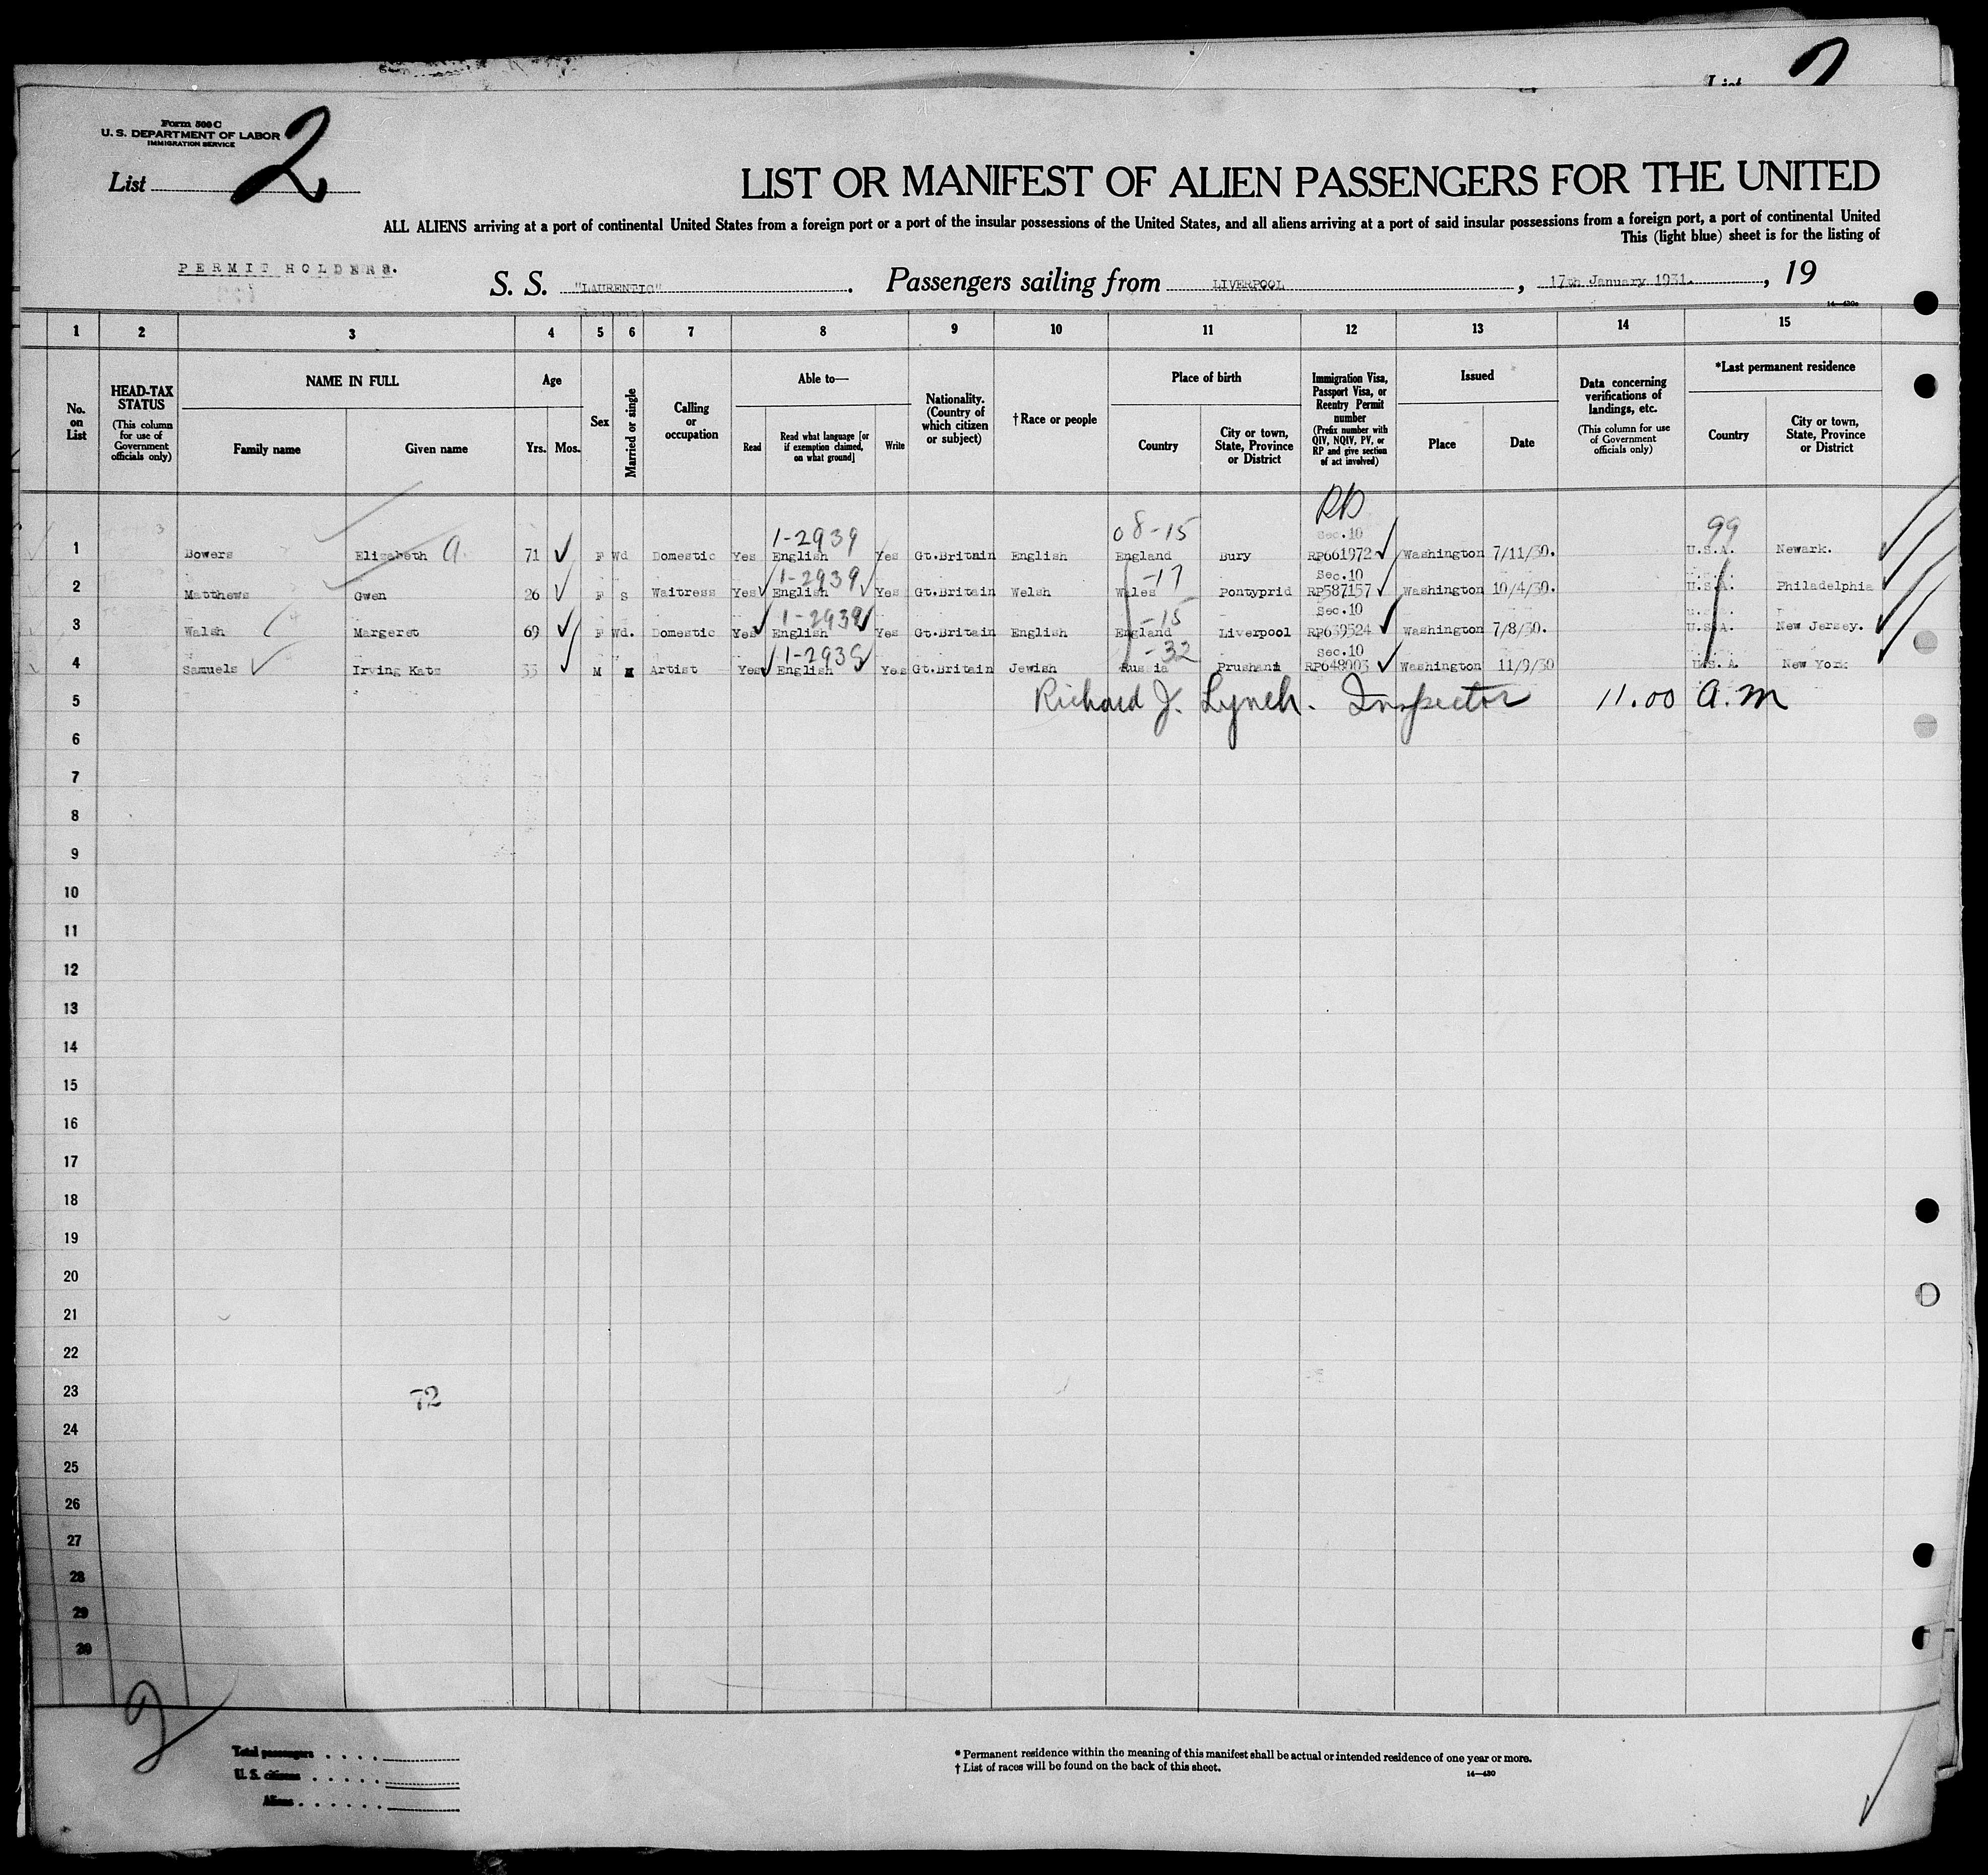 List 2
Form 500 C
U. S. DEPARTMENT OF LABOR
IMMIGRATION SERVICE
List 2
LIST OR MANIFEST OF ALIEN PASSENGERS FOR THE UNITED
ALL ALIENS arriving at a port of continental United States from a foreign port or a port of the insular possessions of the United States, and all aliens arriving at a port of said insular possessions from a foreign port, a port of continental United
This (light blue) sheet is for the listing of
PERMIT HOLDERS.
S. S. "LAURENTIC". Passengers sailing from LIVERPOOL, 17th January 1931., 19
14—430a
1 2 3 4 5 6 7 8 9 10 11 12 13 14 15
No. on List
HEAD-TAX STATUS (This column for use of Government officials only)
NAME IN FULL
Family name
Given name
Age
Yrs. Mos.
Sex
Married or single
Calling or occupation
Able to—
Read
Read what language [or if exemption claimed, on what ground]
Write
Nationality. (Country of which citizen or subject)
†Race or people
Place of birth
Country
City or town, State, Province or District
Immigration Visa, Passport Visa, or Reentry Permit number (Prefix number with QIV, NQIV, PV, or RP and give section of act involved)
Issued
Place
Date
Data concerning verifications of landings, etc. (This column for use of Government officials only)
*Last permanent residence
Country
City or town, State, Province or District
1-2939 08-15 Sec.10 99
1 Bowers Elizabeth A. 71 F Wd Domestic Yes English Yes Gt.Britain English England Bury RP661972 Washington 7/11/30. U.S.A. Newark.
1-2939 -17 Sec.10
2 Matthews Gwen 26 F S Waitress Yes English Yes Gt.Britain Welsh Wales Pontyprid RP587157 Washington 10/4/30. U.S.A. Philadelphia
1-2939 -15 Sec.10
3 Walsh Margeret 69 F Wd. Domestic Yes English Yes Gt.Britain English England Liverpool RP639524 Washington 7/8/30. U.S.A. New Jersey.
1-2939 -32 Sec.10
4 Samuels Irving Katz 33 M Artist Yes English Yes Gt.Britain Jewish Russia RP648003 Washington 11/9/30 U.S.A. New York
5 Richard J. Lynch. Inspector 11.00 a.m
6
7
8
9
10
11
12
13
14
15
16
17
18
19
20
21
22
23 72
24
25
26
27
28
29
30
2
Total passengers
U. S. citizens
Aliens
* Permanent residence within the meaning of this manifest shall be actual or intended residence of one year or more.
† List of races will be found on the back of this sheet.
14—430